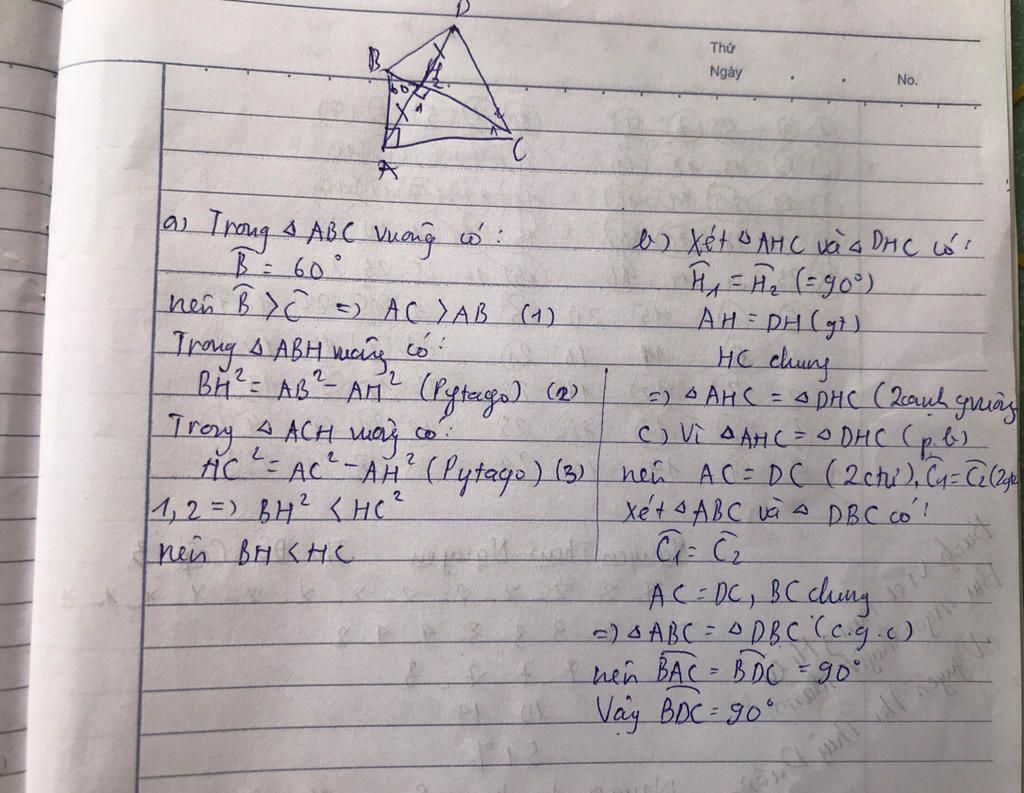 Thứ
Ngày
No.
D
B
60
H
2
1
2
1
A
C
a) Trong △ ABC vuông có:
B̂ = 60°
nên B̂ > Ĉ => AC > AB (1)
Trong △ ABH vuông có:
BH² = AB² - AH² (Pytago) (2)
Trong △ ACH vuông có:
HC² = AC² - AH² (Pytago) (3)
1, 2 => BH² < HC²
nên BH < HC
b) Xét △ AHC và △ DHC có:
Ĥ₁ = Ĥ₂ (= 90°)
AH = DH (gt)
HC chung
=> △ AHC = △ DHC (2 cạnh gvuông
c) Vì △ AHC = △ DHC (p.b)
nên AC = DC (2ctứ), Ĉ₁ = Ĉ₂ (2gtứ
Xét △ ABC và △ DBC có:
Ĉ₁ = Ĉ₂
AC = DC, BC chung
=> △ ABC = △ DBC (c.g.c)
nên B̂AC = B̂DC = 90°
Vậy B̂DC = 90°